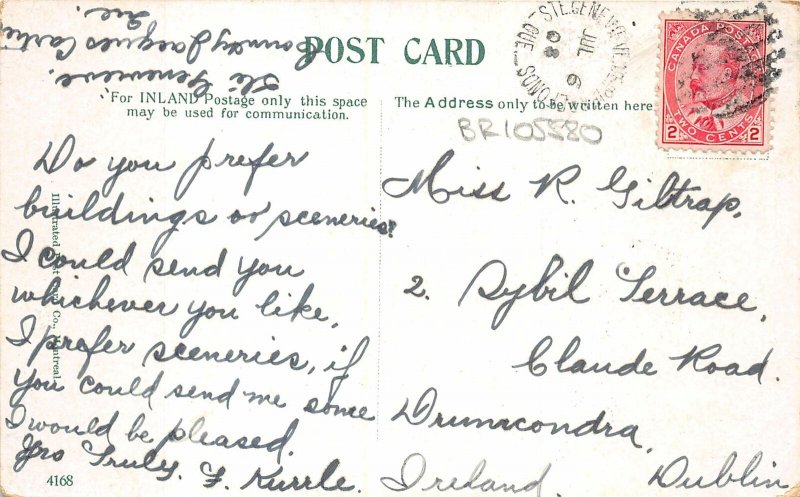 Ste Genevieve.
County Jacques Cartier
Que.
POST CARD
For INLAND Postage only this space
may be used for communication.
The Address only to be written here
STE.GENEVIEVE
JUL 6
08
QUE
CANADA POSTAGE
2 2
TWO CENTS
BR105580
Do you prefer
buildings or sceneries?
I could send you
whichever you like,
I prefer sceneries, if
you could send me some
I would be pleased.
Yrs Truly. F. Kurrle.
Miss R. Giltrap,
2. Sybil Terrace,
Claude Road.
Drumcondra,
Dublin
Ireland.
Illustrated Post Card Co., Montreal.
4168